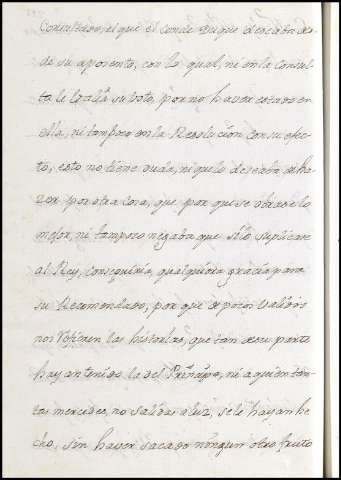 Consultado, el que el Conde Duque deseaba
de su aposento, con lo qual, ni en la Consul-
ta le su voto, por no haver estado en
ella, ni tampoco en la Resolucion con su efec-
to, esto no tiene duda, ni que lo deseaba
zer por otra cosa, que por que se obrase lo
mejor, ni tampoco negaba que si lo suplicase
al Rey, conseguiria, qualquiera gracia para
su Recomendado, por que de pocos Validos
nos refieren las historias, que tan de su parte
hayan tenido la del Principe, ni a quien tan-
tas mercedes, no salidas a luz, se le hayan he-
cho, sin haver sacado ningun otro fruto